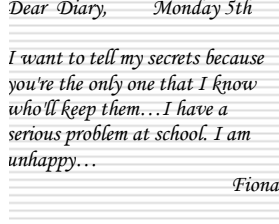 Dear Diary, Monday 5th
I want to tell my secrets because
you're the only one that I know
who'll keep them…I have a
serious problem at school. I am
unhappy…
Fiona